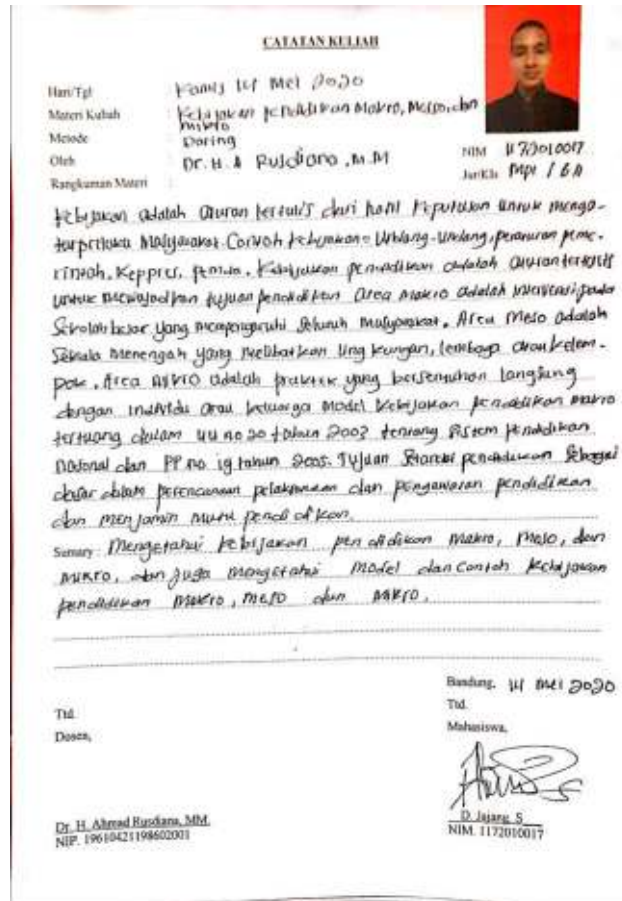 CATATAN KULIAH
Hari/Tgl : Kamis 14 Mei 2020
Materi Kuliah : Kebijakan pendidikan Makro, Meso, dan
mikro
Metode : Daring
Oleh : Dr. H. A Rusdiana, M.M
NIM 1172010017
Jur/Kls MPI / 6A
Rangkuman Materi :
Kebijakan adalah aturan tertulis dari hasil keputusan untuk menga-
tur prilaku Masyarakat. Contoh kebijakan = Undang-Undang, peraturan peme-
rintah, Keppres, Perda. Kebijakan pendidikan adalah aturan tertulis
untuk mewujudkan tujuan pendidikan Area makro adalah intervensi pada
besar yang mempengaruhi seluruh masyarakat. Area Meso adalah
Skala Menengah yang melibatkan lingkungan, lembaga atau kelom-
pok. Area Mikro adalah praktek yang bersentuhan langsung
dengan individu atau keluarga Model kebijakan pendidikan makro
tertuang dalam UU no 20 tahun 2003 tentang Sistem pendidikan
nasional dan PP no 19 tahun 2005. Tujuan Standar pendidikan Sebagai
dasar dalam perencanaan pelaksanaan dan pengawasan pendidikan
dan menjamin mutu pendidikan.
Sumary : Mengetahui kebijakan pendidikan Makro, Meso, dan
Mikro, dan juga mengetahui Model dan Contoh kebijakan
pendidikan Makro, meso dan mikro.
Bandung, 14 Mei 2020
Ttd.
Dosen,
Ttd.
Mahasiswa,
Dr. H. Ahmad Rusdiana, MM.
NIP. 19610421198602001
D. Jajang. S
NIM. 1172010017